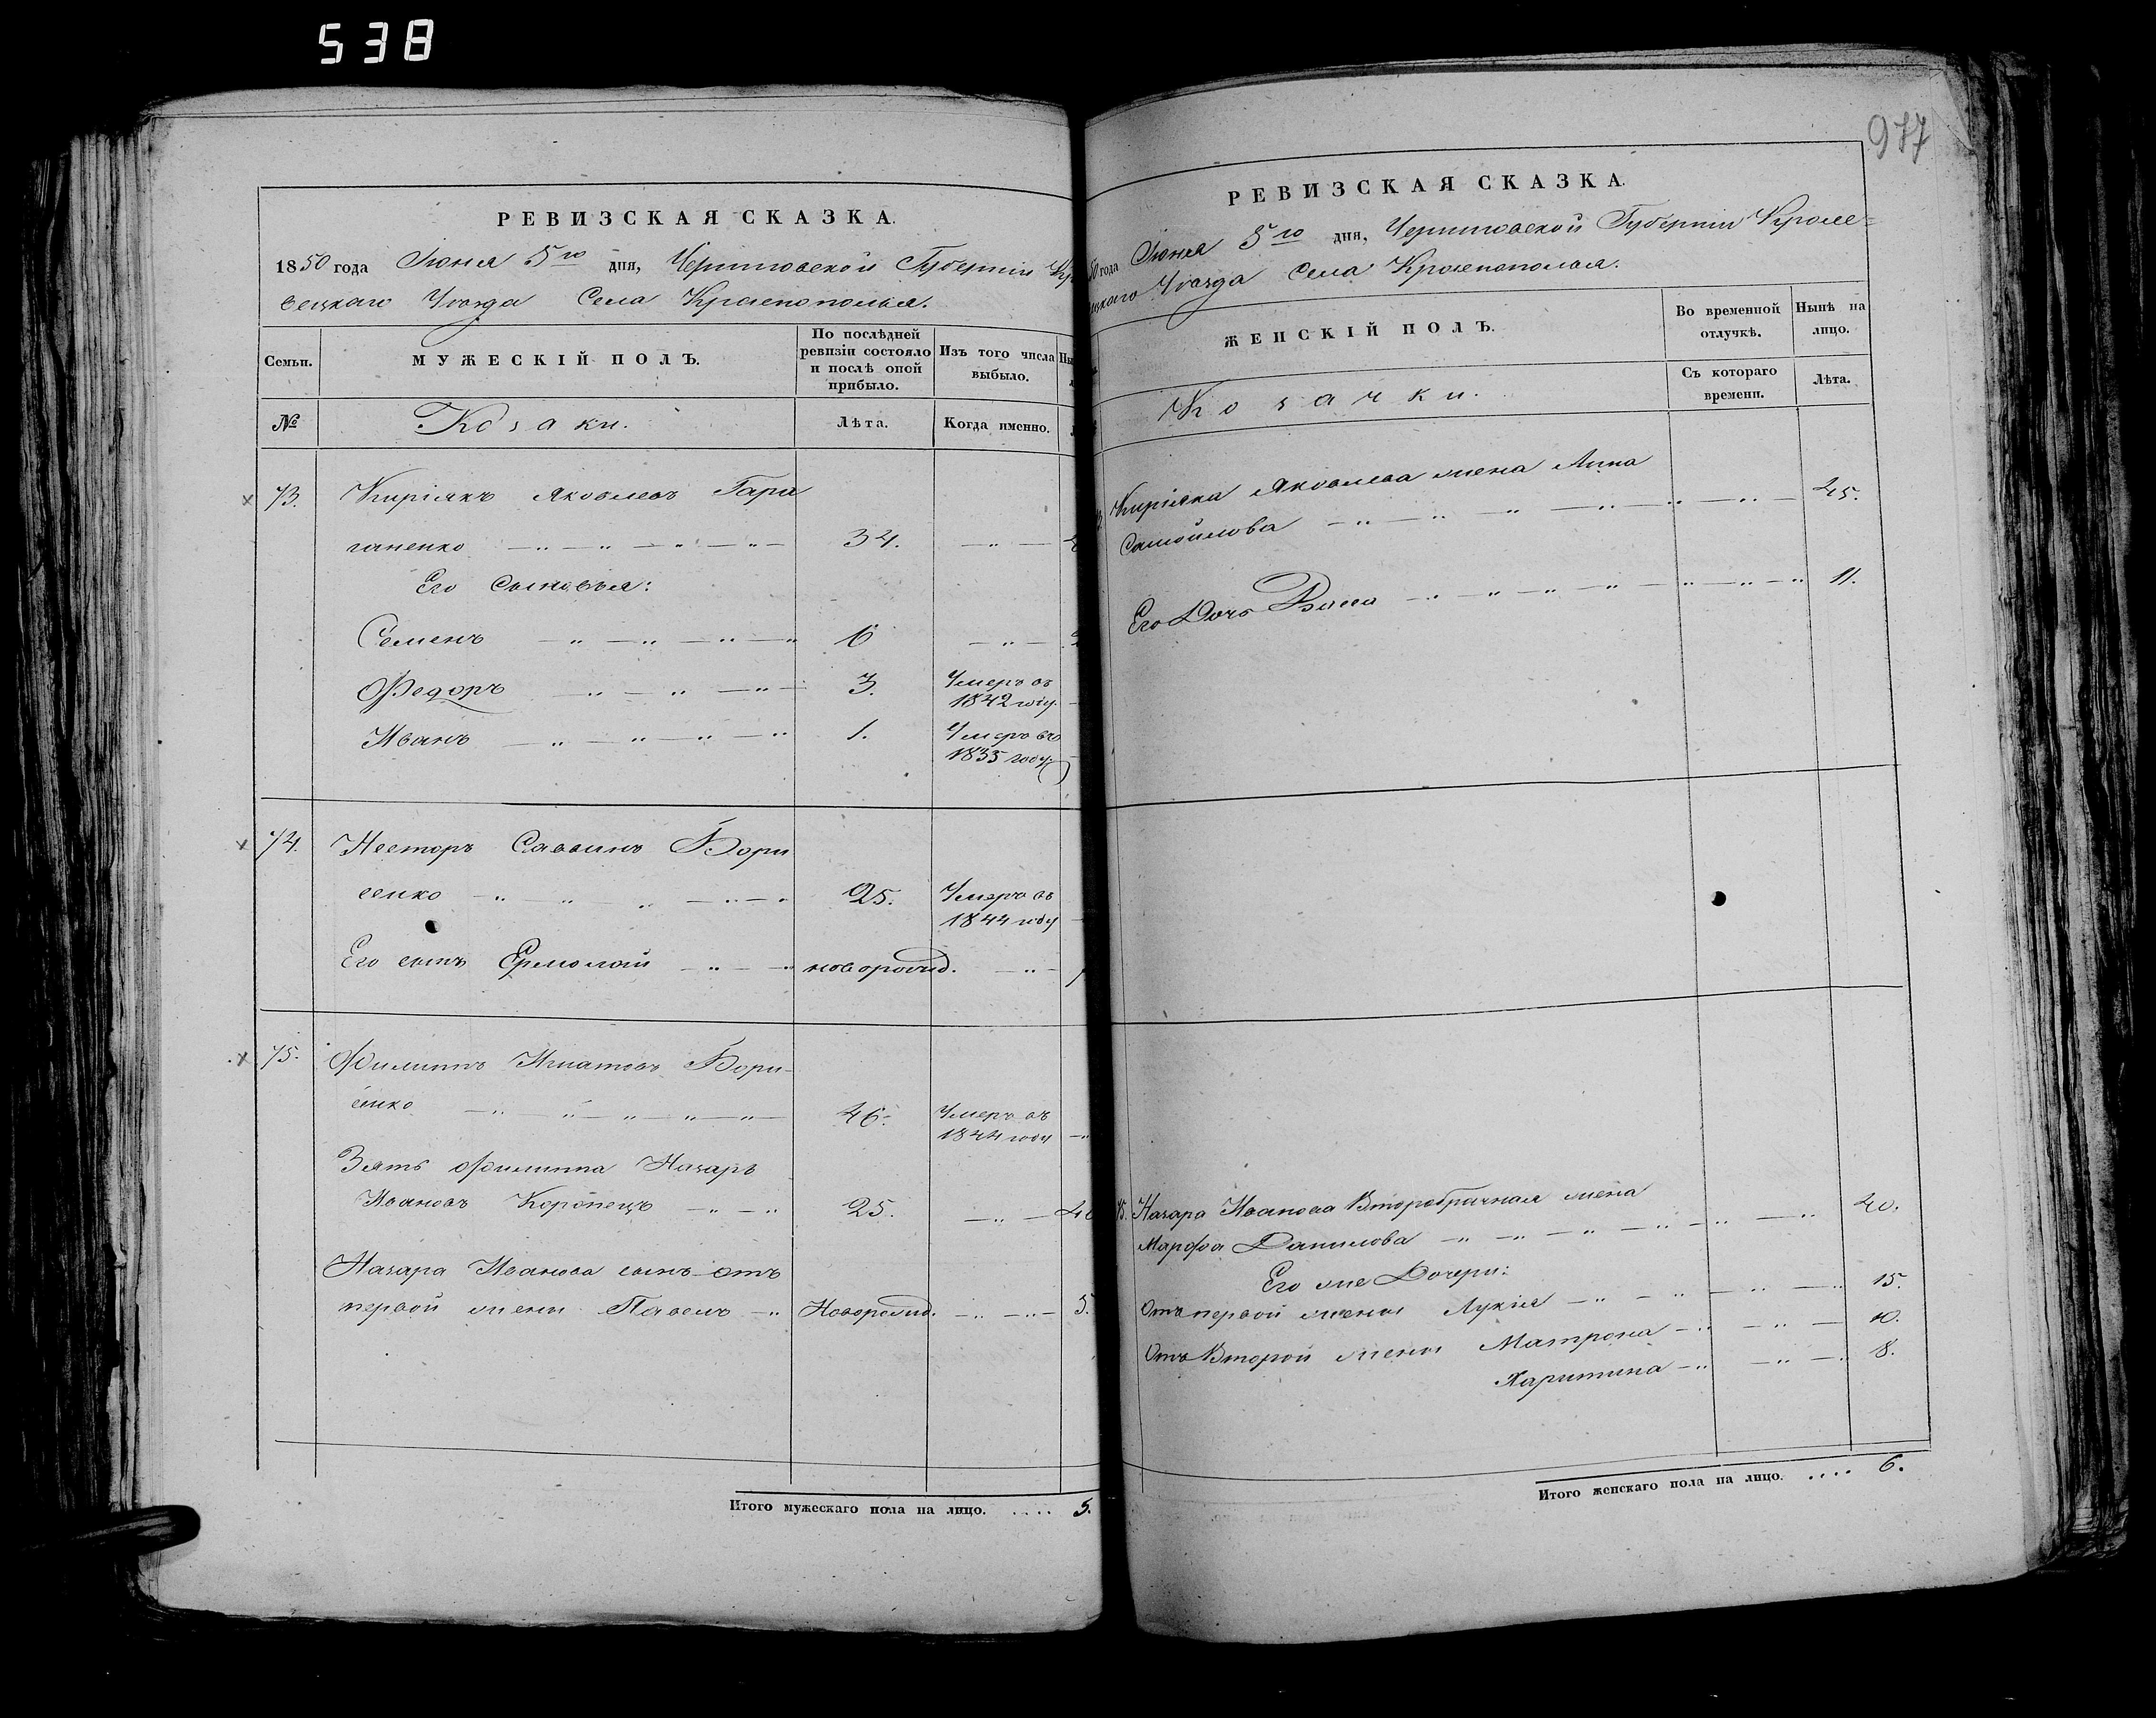 538
977
РЕВИЗСКАЯ СКАЗКА.
1850 года Іюня 5го дня, Черниговской Губерніи Кр
вецкаго Уѣзда Села Краснополья.
Семьи.
МУЖЕСКІЙ ПОЛЪ.
По послѣдней
ревизіи состояло
и послѣ оной
прибыло.
Изъ того числа
выбыло.
№
Козаки.
Лѣта.
Когда именно.
73. Киріякъ Яковлевъ Гара
ганенко 34.
Его Сыновья:
Семенъ 6
Федоръ 3. Умеръ въ
1842 году.
Иванъ 1. Умеръ въ
1835 году
74. Несторъ Саввинъ Бори
сенко 25. Умеръ въ
1844 году
Его сынъ Ермолай новорожд.
75. Филиппъ Игнатовъ Бори-
сенко 46. Умеръ въ
1844 году
Зять Филиппа Назаръ
Ивановъ Коропецъ 25.
Назара Иванова сынъ отъ
первой жены Павелъ Новорожд. 5.
Итого мужескаго пола на лицо. .... 5.
РЕВИЗСКАЯ СКАЗКА.
50 года Іюня 5го дня, Черниговской Губерніи Кроле=
вецкаго Уѣзда Села Краснополья.
ЖЕНСКІЙ ПОЛЪ.
Во временной
отлучкѣ.
Нынѣ на
лицо.
Козачки.
Съ котораго
времени.
Лѣта.
Киріяка Яковлева жена Анна
Самойлова 45.
Его Дочь Васса 11.
75. Назара Иванова Второбрачная жена
Марфа Данилова 40.
Его же Дочери:
Отъ первой жены Лукія 15.
Отъ Второй жены Матрона 10.
Харитина 8.
Итого женскаго пола на лицо. .... 6.